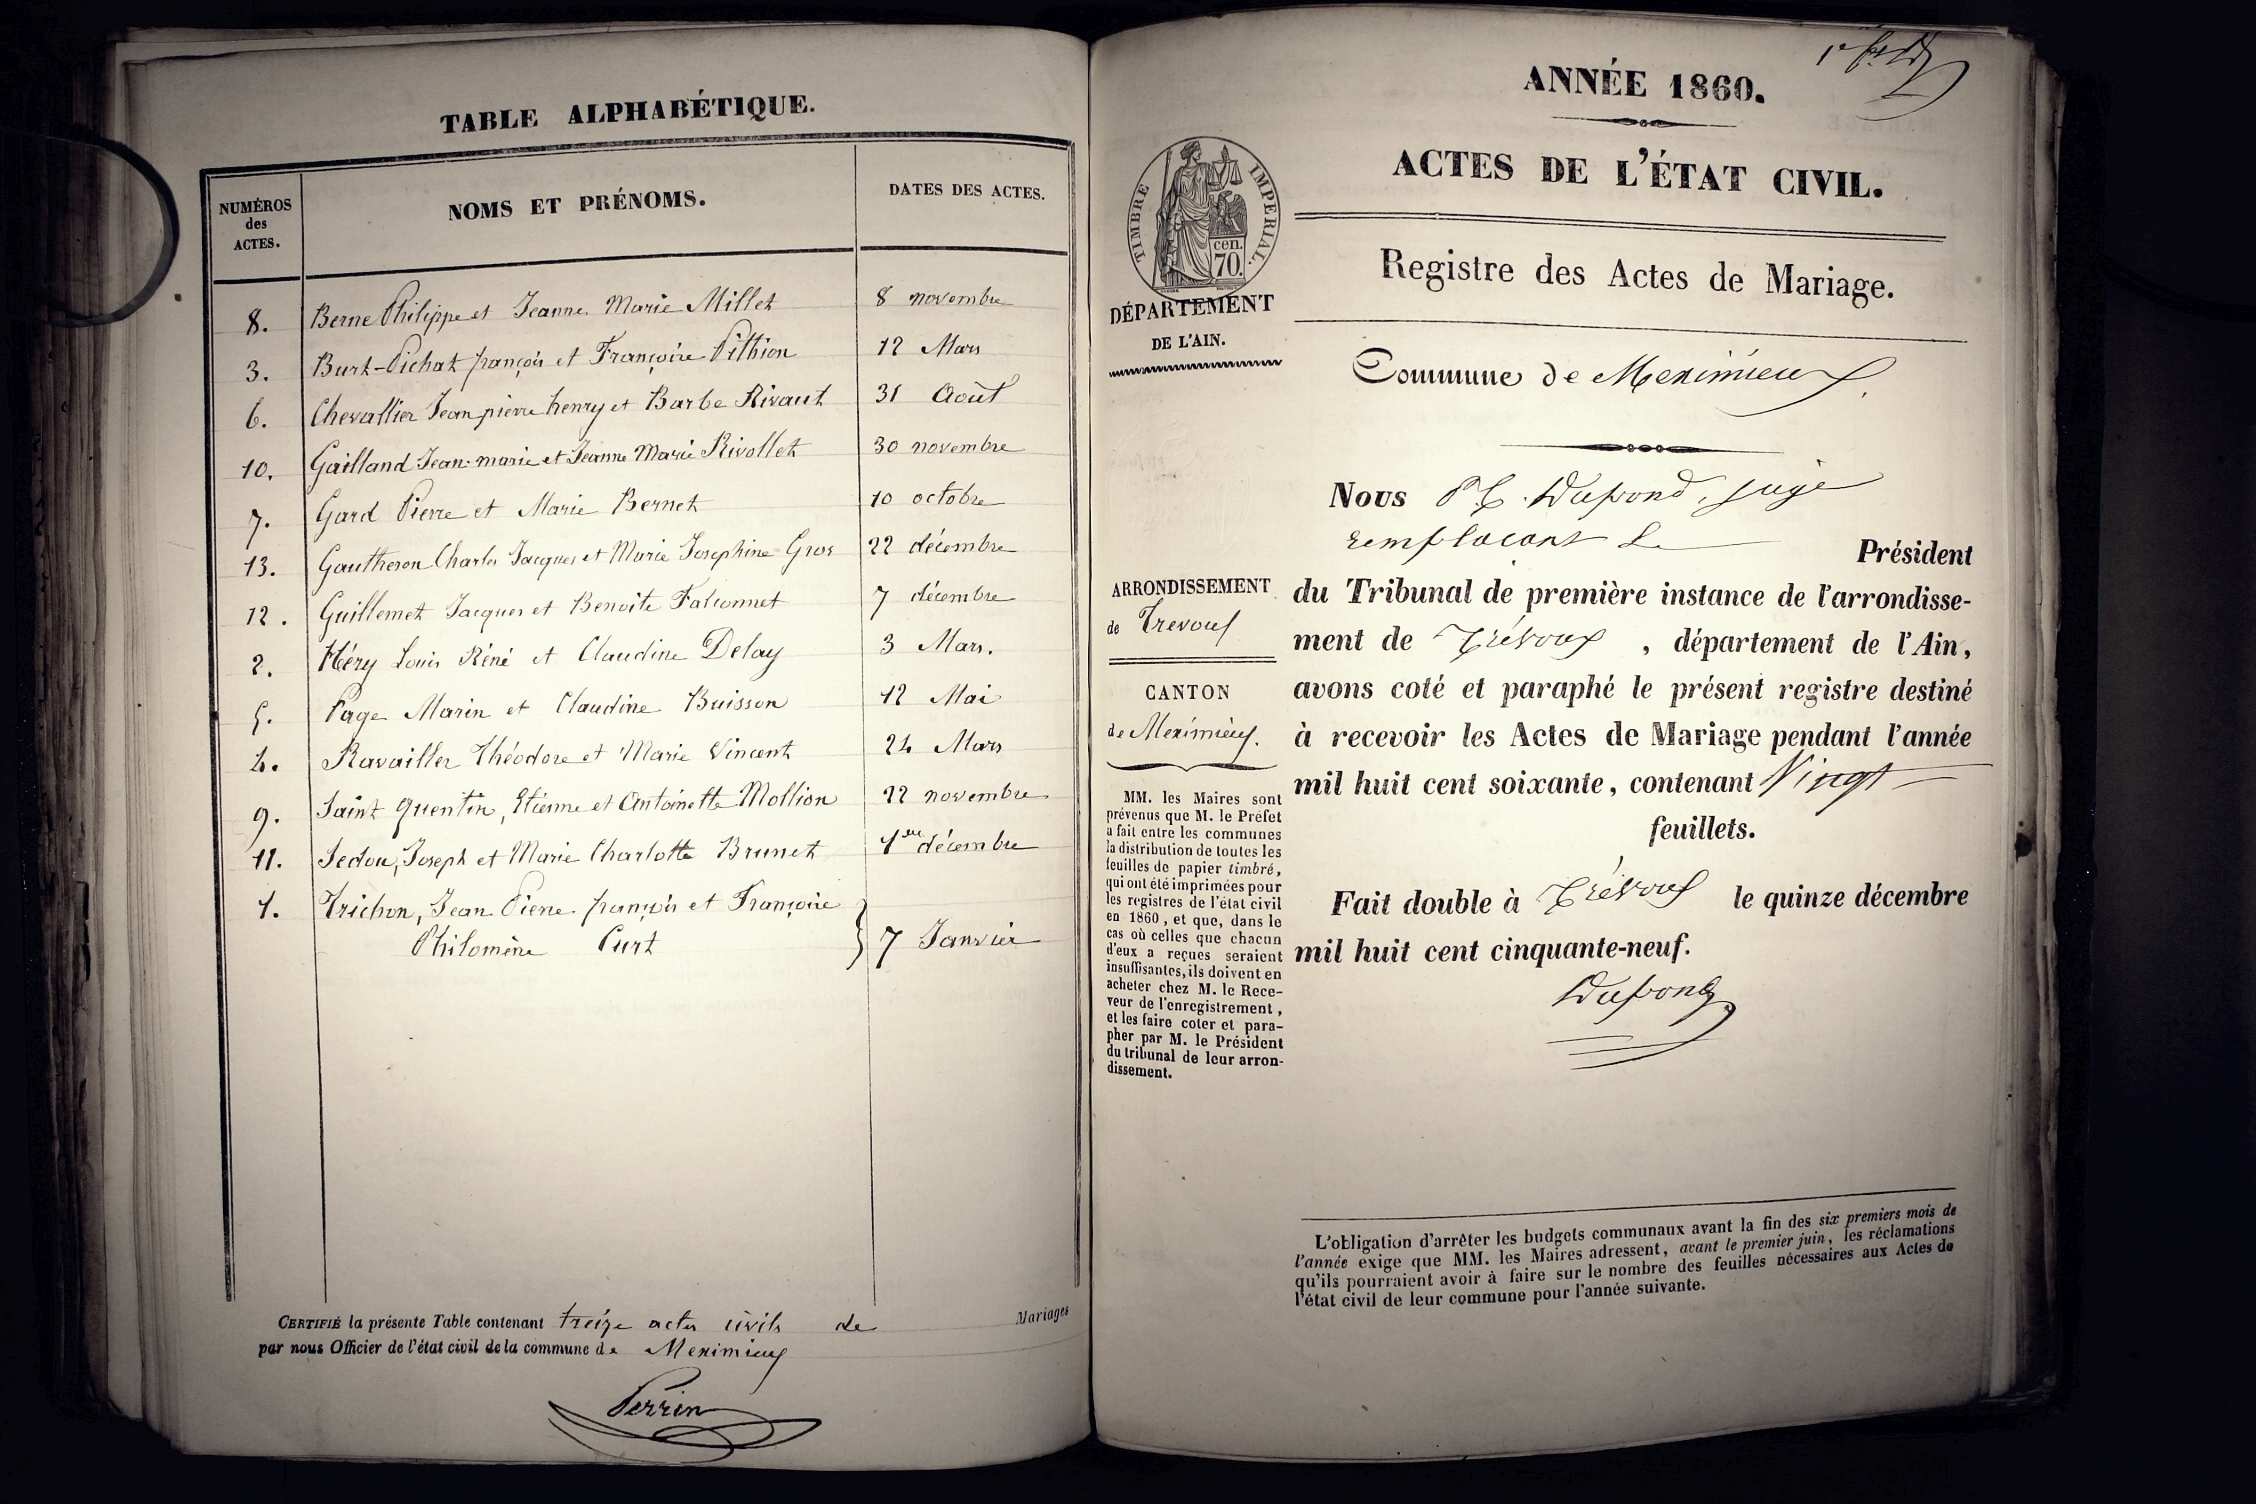 TABLE ALPHABÉTIQUE.
NUMÉROS
des
ACTES.
NOMS ET PRÉNOMS.
DATES DES ACTES.
8. Berne Philippe et Jeanne Marie Millet 8 novembre
3. Burt-Pichat françois et Françoise Pithion 12 Mars
6. Chevallier Jean pierre henry et Barbe Rivaut 31 Août
10. Gailland Jean-marie et Jeanne Marie Rivollet 30 novembre
7. Gard Pierre et Marie Bernet 10 octobre
13. Gautheron Charles Jacques et Marie Josephine Gros 22 décembre
12. Guillemet Jacques et Benoite Falconnet 7 décembre
2. Héry Louis Réné et Claudine Delay 3 Mars.
5. Page Marin et Claudine Buisson 12 Mai
4. Ravailler Théodore et Marie Vincent 24 Mars
9. Saint Quentin, Etienne et Antoinette Mollion 22 novembre
11. Sedou, Joseph et Marie Charlotte Brunet 1er décembre
1. Trichon, Jean Pierre françois et Françoise
Philomène Curt 7 Janvier
CERTIFIÉ la présente Table contenant treize actes civils de Mariages
par nous Officier de l'état civil de la commune de Meximieux
Perrin
1er
ANNÉE 1860.
ACTES DE L'ÉTAT CIVIL.
TIMBRE IMPERIAL.
cen.
70.
DÉPARTEMENT
DE L'AIN.
Registre des Actes de Mariage.
Commune de Meximieux
Nous Dupond, juge
remplaçant le Président
du Tribunal de première instance de l'arrondisse-
ment de Trévoux, département de l'Ain,
avons coté et paraphé le présent registre destiné
à recevoir les Actes de Mariage pendant l'année
mil huit cent soixante, contenant Vingt
feuillets.
Fait double à Trévoux le quinze décembre
mil huit cent cinquante-neuf.
Dupond
ARRONDISSEMENT
de Trevoux
CANTON
de Meximieux.
MM. les Maires sont
prévenus que M. le Préfet
a fait entre les communes
la distribution de toutes les
feuilles de papier timbré,
qui ont été imprimées pour
les registres de l'état civil
en 1860, et que, dans le
cas où celles que chacun
d'eux a reçues seraient
insuffisantes, ils doivent en
acheter chez M. le Rece-
veur de l'enregistrement,
et les faire coter et para-
pher par M. le Président
du tribunal de leur arron-
dissement.
L'obligation d'arrêter les budgets communaux avant la fin des six premiers mois de
l'année exige que MM. les Maires adressent, avant le premier juin, les réclamations
qu'ils pourraient avoir à faire sur le nombre des feuilles nécessaires aux Actes de
l'état civil de leur commune pour l'année suivante.